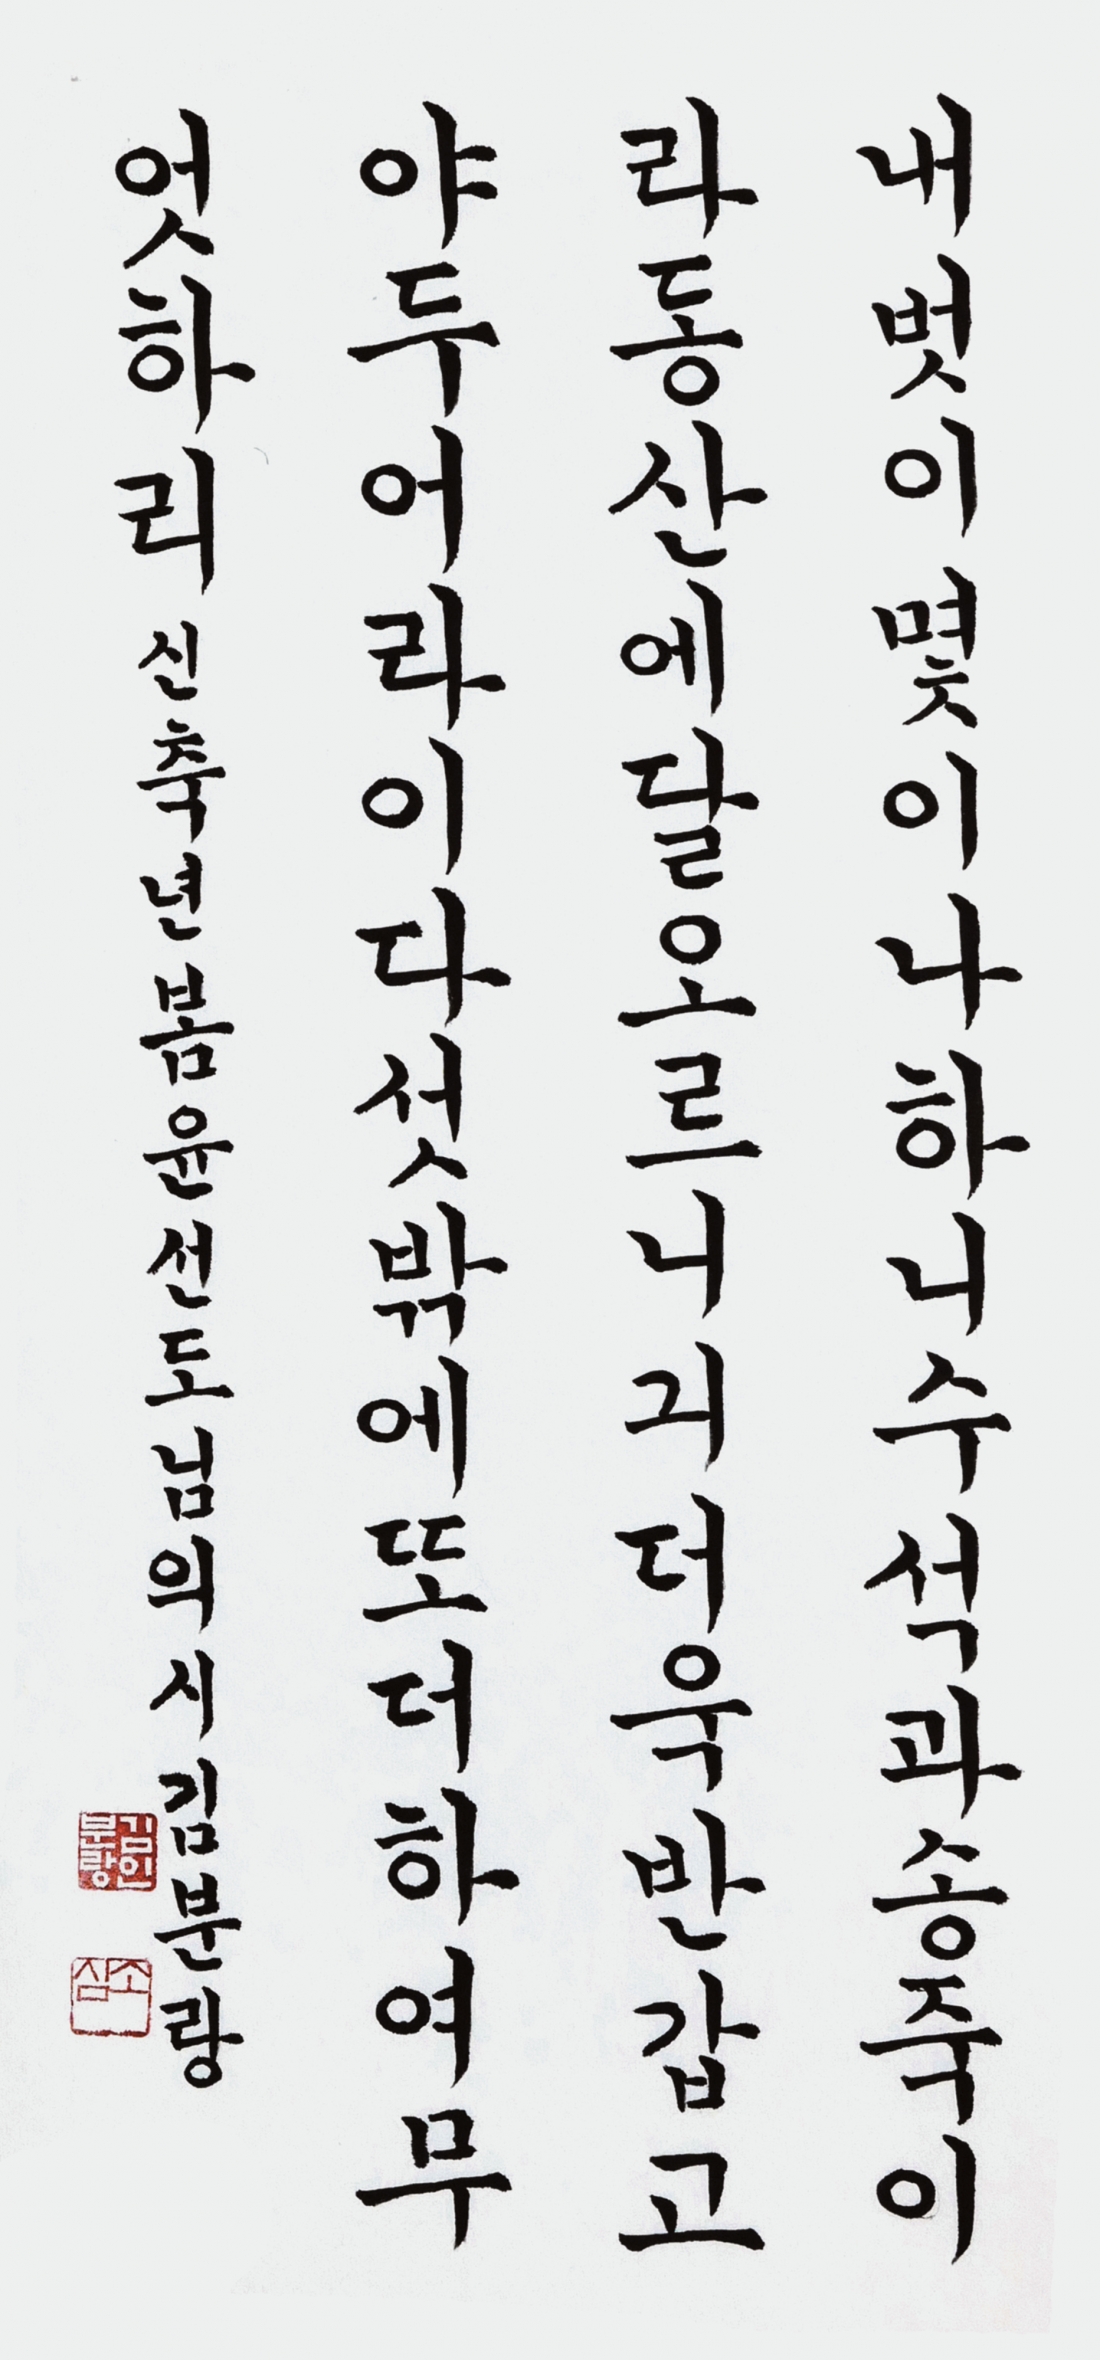 내벗이몇이나하니수석과송죽이
라동산에달오르니긔더욱반갑고
야두어라이다섯밖에또더하여무
엇하리 신축년봄윤선도님의시김분랑
김인분랑